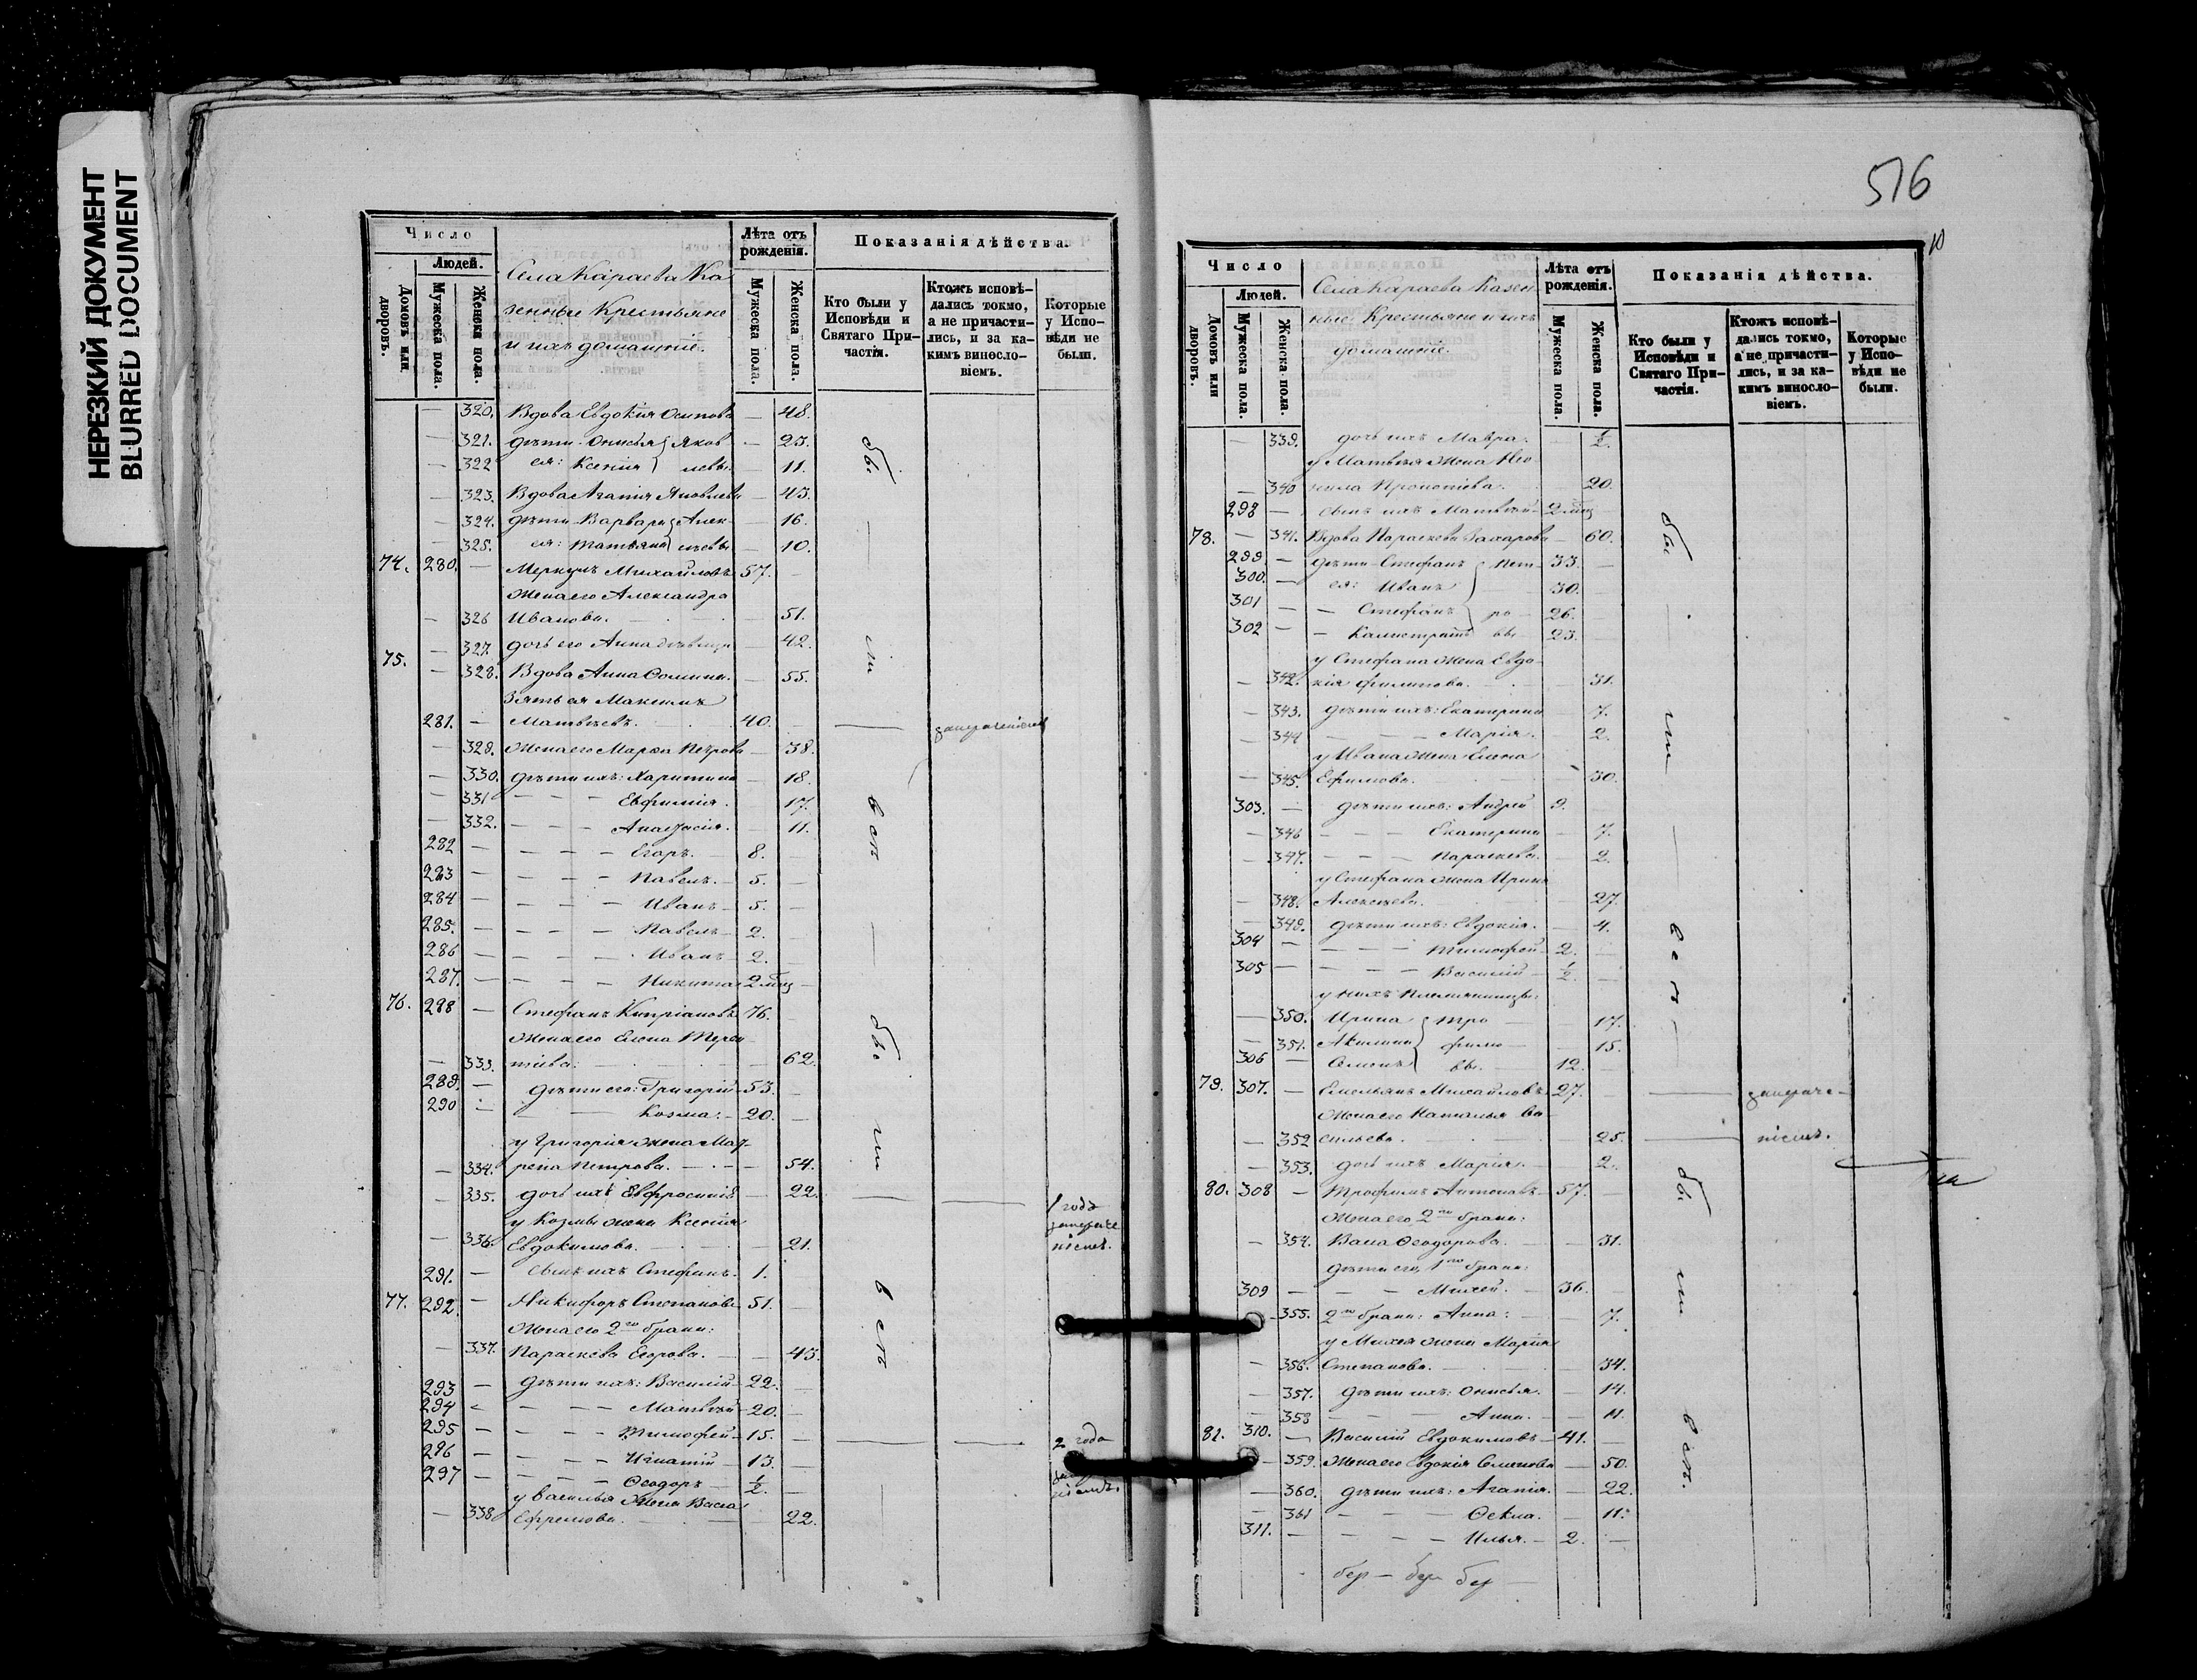 НЕРЕЗКИЙ ДОКУМЕНТ
BLURRED DOCUMENT
Число
Людей.
Домовъ или дворовъ.
Мужеска пола.
Женска пола.
Села Караева Ка
зенные Крестьяне
и ихъ домашніе.
Лѣта отъ рожденія.
Мужеска пола.
Женска пола.
Показанія дѣйства.
Кто были у Исповѣди и Святаго Причастія.
Ктожъ исповѣдались токмо, а не причастились, и за какимъ винословіемъ.
Которые у Исповѣди не были.
— 320. Вдова Евдокія Осипова — 48.
— 321. дѣти Онисья Яков — 23.
— 322 ея: Ксенія левы — 11.
— 323. Вдова Агапія Яковлева — 43.
— 324. дѣти Варвара Алек — 16.
— 325. ея: Татьяна сѣевы — 10.
74. 280. — Меркулъ Михайловъ 57. —
Жена его Александра
— 326 Иванова. 51.
— 327. дочь его Анна 42.
75. — 328. Вдова Анна Фомина. — 55.
Зять ея Максимъ
281. — Матвѣевъ. 40.
— 329. Жена его Марѳа Петрова — 38.
— 330. дѣти ихъ: Харитина 18.
— 331 — — — Евфимія. 17.
— 332. — — — Анастасія. 11.
282 — — — — Егоръ. 8. —
283 — — — — Павелъ. — 5. —
284 — — — — Иванъ — 5. —
285. — — — — Павелъ — 2. —
286 — — — — Иванъ — 2. —
287. — — — — Никита 2 мѣс —
76. 288 — Стефанъ Кипріановъ 76. —
Жена его Елена Терен
— 333. тіева: — 62.
289. — дѣти его: Григорій — 53. —
290 — — Козма: — 20. —
у Григорія жена Мат
— 334. рена Петрова. — 54.
— 335. дочь ихъ Евфросинія — 22.
1 года
у Козмы жена Ксенія
— 336. Евдокимова. — 21.
291. — сынъ ихъ Стефанъ. 1.
77. 292. — Никифоръ Степановъ 51. —
Жена его 2го брака:
— 337. Параскева Егорова. — 43.
293 — дѣти ихъ: Василій — 22. —
294 — — — Матвѣй — 20. —
295 — — — — Тимофей — 15. —
2 года
296 — — — — Игнатій — 13. —
297 — — — — Ѳеодоръ — ½. —
у Василья Жена Васса
— 338 Ефремова. — 22.
бы — ли вси — бы ли всѣ
516
10
Число
Людей.
Домовъ или дворовъ.
Мужеска пола.
Женска пола.
Села Караева Казен
ные Крестьяне и ихъ
домашніе.
Лѣта отъ рожденія.
Мужеска пола.
Женска пола.
Показанія дѣйства.
Кто были у Исповѣди и Святаго Причастія.
Ктожъ исповѣдались токмо, а не причастились, и за какимъ винословіемъ.
Которые у Исповѣди не были.
— 339. дочь ихъ Мавра. ½.
у Матвѣя жена Нео
— 340 нила Прокопіева. 20.
298 — сынъ ихъ Матвѣй — 2 мѣс
78. — 341. Вдова Параскева Захарова — 60.
299. — дѣти Стефанъ Пет — 33. —
300. — ея: Иванъ 30. —
301 — — Стефанъ ро — 26. —
302 — — Калистратъ вы 23. —
у Стефана жена Евдо
— 342. кія Филипова. 31.
— 343. дѣти ихъ: Екатерина 7.
— 344 — — — Марія. 2.
у Ивана жена Елена
— 345. Ефимова. 30.
303. — дѣти ихъ: Андрей 9.
— 346 — — — Екатерина — 7.
— 347. — — — Параскева. 2.
у Стефана жена Ирина
— 348. Алексѣева. 27.
— 349. дѣти ихъ: Евдокія. — 4.
304 — — — — Тимофей — 2. —
305 — — — — Василій — ½. —
у нихъ племянницы:
— 350. Ирина Тро — 17.
— 351. Акилина фимо — 15.
306 — Семенъ вы. — 12. —
79. 307. — Емельянъ Михайловъ 27. —
Жена его Наталья Ва
— 352 сильева. 25.
— 353. дочь ихъ Марія. — 2.
80. 308 — Трофимъ Антоновъ — 57. —
Жена его 2го брака:
— 354. Васса Ѳеодорова. — — 31.
дѣти его 1го брака:
309 — — — Михей. — 36. —
355. 2го брака: Анна: — 7.
у Михея жена Марія
— 356. Степанова. — 34.
— 357. дѣти ихъ: Онисья. — 14.
— 358 — — — Анна. — 11.
81. 310. — Василій Евдокимовъ — 41. —
— 359. Жена его Евдокія Семенова — 50.
— 360. дѣти ихъ: Агапія. — 22.
— 361 — — — Ѳекла. — 11.
311. — — — — Илья. — 2. —
бы — ли — всѣ — бы ли всѣ.